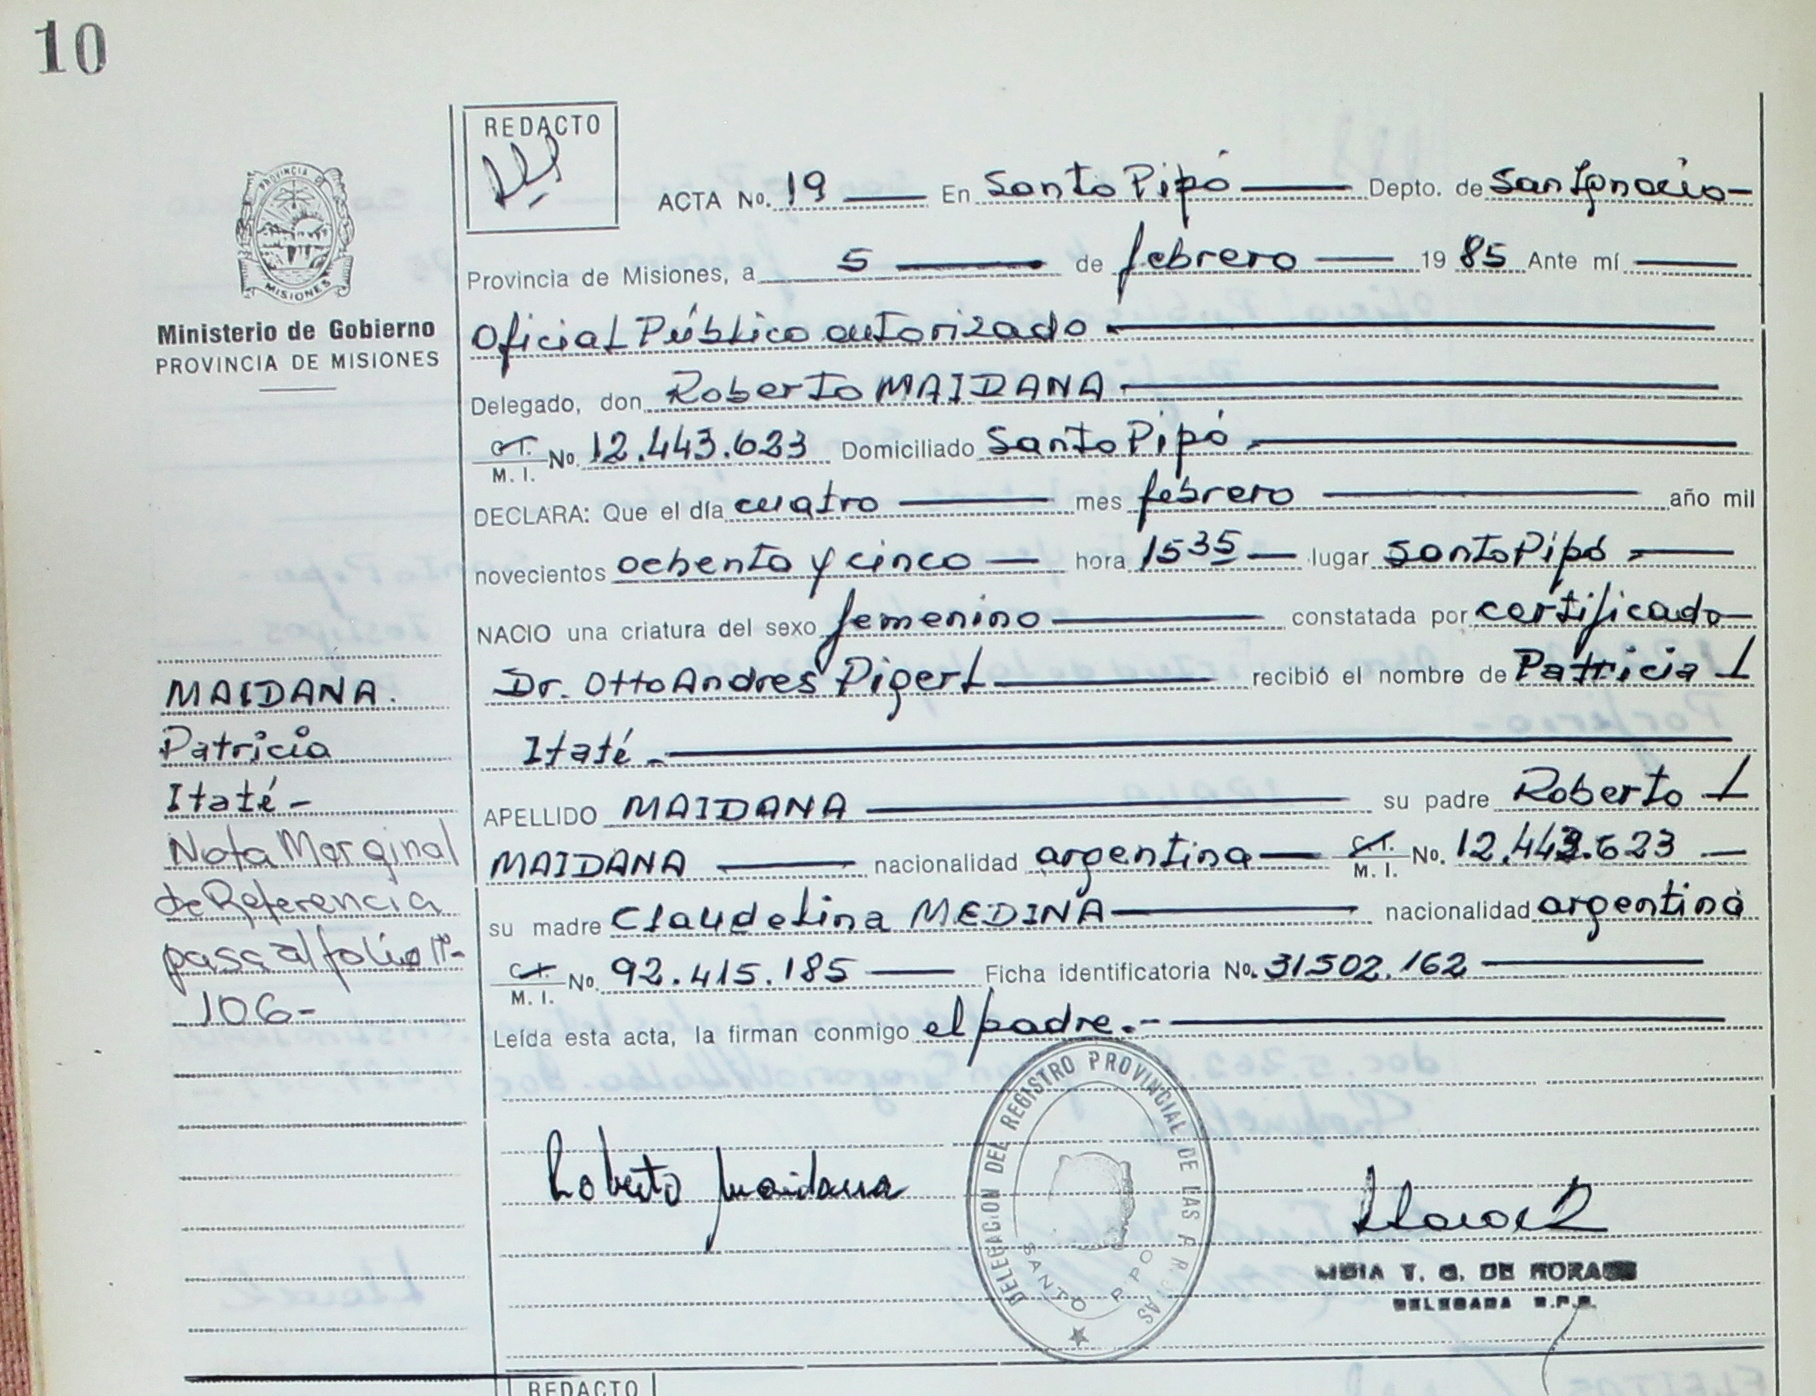 10
REDACTO
ACTA No. 19 En Santo Pipó Depto. de San Ignacio
Provincia de Misiones, a 5 de febrero 1985 Ante mí
Oficial Público autorizado
Delegado, don Roberto MAIDANA
C.I. M. I. No. 12.443.623 Domiciliado Santo Pipó
DECLARA: Que el día cuatro mes febrero año mil
novecientos ochenta y cinco hora 1535 lugar Santo Pipó
NACIO una criatura del sexo femenino constatada por certificado
Dr. Otto Andres Pigerl recibió el nombre de Patricia
Itaté
APELLIDO MAIDANA su padre Roberto
MAIDANA nacionalidad argentina C.I. M. I. No. 12.443.623
su madre Claudelina MEDINA nacionalidad argentina
C.I. M. I. No. 92.415.185 Ficha identificatoria No. 31502.162
Leída esta acta, la firman conmigo el padre.-
PROVINCIA DE MISIONES
Ministerio de Gobierno
PROVINCIA DE MISIONES
MAIDANA.
Patricia
Itaté-
Nota Marginal
de Referencia
pasa al folio Nº-
106-
Roberto Maidana
DELEGACION DEL REGISTRO PROVINCIAL DE LAS PERSONAS
SANTO PIPO
T. G. DE MORAES
DELEGADA R.P.P.
REDACTO